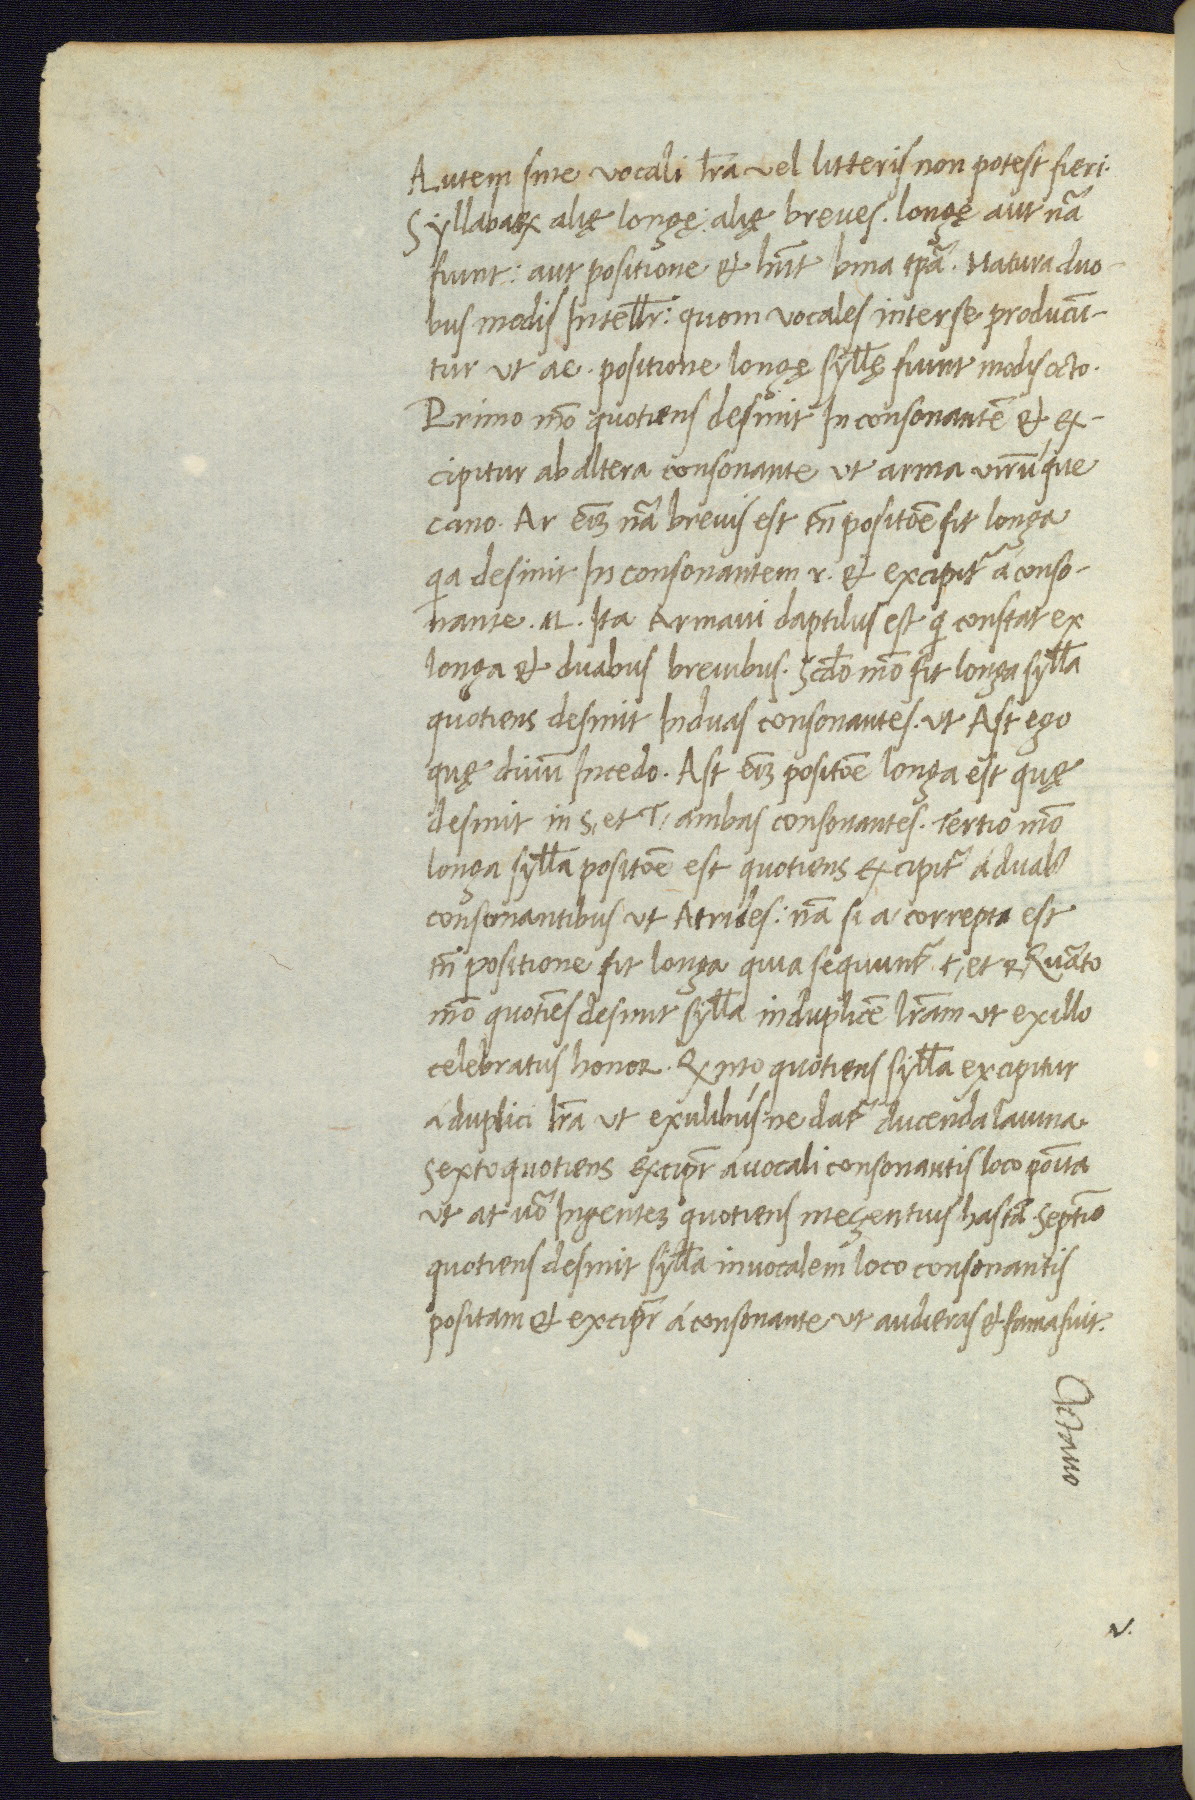 Autem sine vocali l̅r̅a vel litteris non potest fieri.
Syllabaꝝ alię longę: alię breves. longę aut nā
fiunt: aut positione & hn̄t bina tp̄a. Natura duo-
bus modis Intell̅r: quom vocales inter se producū-
tur ut ae. positione longę syll̅ę fiunt modis octo.
Primo mō quotiens desinit In consonantē & ex-
cipitur ab altera consonante ut arma virūque
cano. Ar eīꝫ nā brevis est tn̄ positōe fit longa
qa desinit In consonantem r. & excipit̃ á conso-
nante. M. Ita Armavi daptilus est q constat ex
longa & duabus brevibus. Scdo mō fit longa syll̅a
quotiens desinit In duas consonantes. ut Ast ego
quę divū Incedo. Ast eīꝫ positōe longa est quę
desinit in S, et T, ambas consonantes. Tertio mō
longa syll̅a positōe est quotiens excipit̃ á duabꝰ
consonantibus ut Atrides: nā si a correpta est
tn̄ positione fit longa quia sequunt̃ t, et r, Quarto
mō quotiēs desinit syll̅a in duplicē l̅r̅am ut ex illo
celebratus honor. Qnto quotiens syll̅a excipitur
á duplici l̅r̅a ut exulibus: ne dat̃ ducenda lavina.
Sexto quotiens excip̃r á vocali consonantis loco poīta
ut at uō Ingentez quotiens meçentius hastā. Septīo
quotiens desinit syll̅a in vocalem loco consonantis
positam & excip̃r á consonante ut audieras & fama fuit.
Octavo
v.